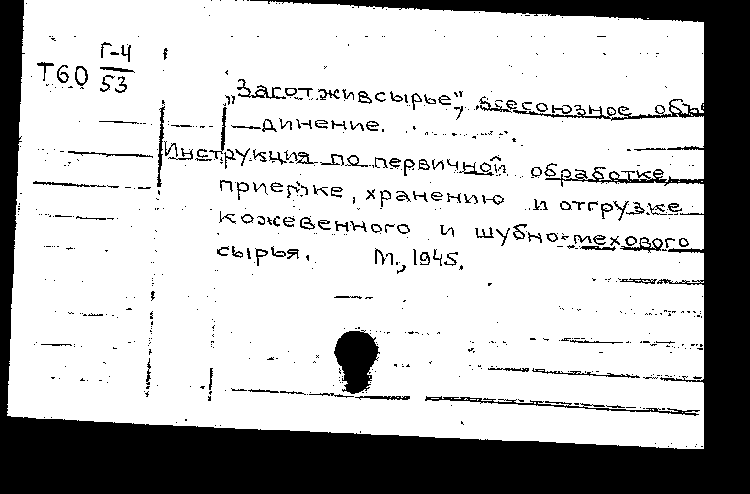 Г-4
Т60 53
„Заготживсырье", всесоюзное объе
динение.
Инструкция по первичной обработке,
приемке, хранению и отгрузке
кожевенного и шубно-мехового
сырья. М., 1945.